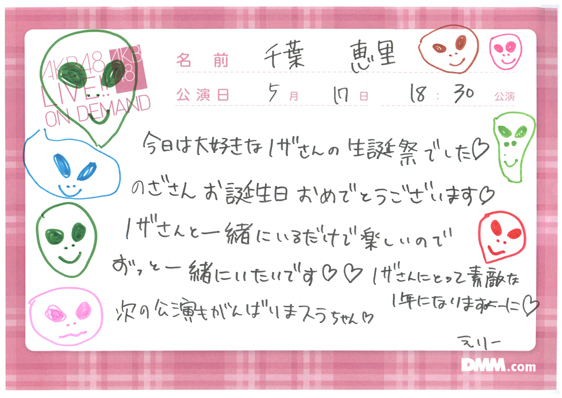 AKB48
LIVE!!
ON DEMAND
AKB48
名前 千葉 恵里
公演日 5月17日 18:30 公演
今日は大好きなノザさんの生誕祭でした♡
のざさんお誕生日おめでとうございます♡
ノザさんと一緒にいるだけで楽しいので
ずっと一緒にいたいです♡♡
ノザさんにとって素敵な
1年になりますよーに♡
次の公演もがんばりまスラちゃん♡
えりー
DMM.com